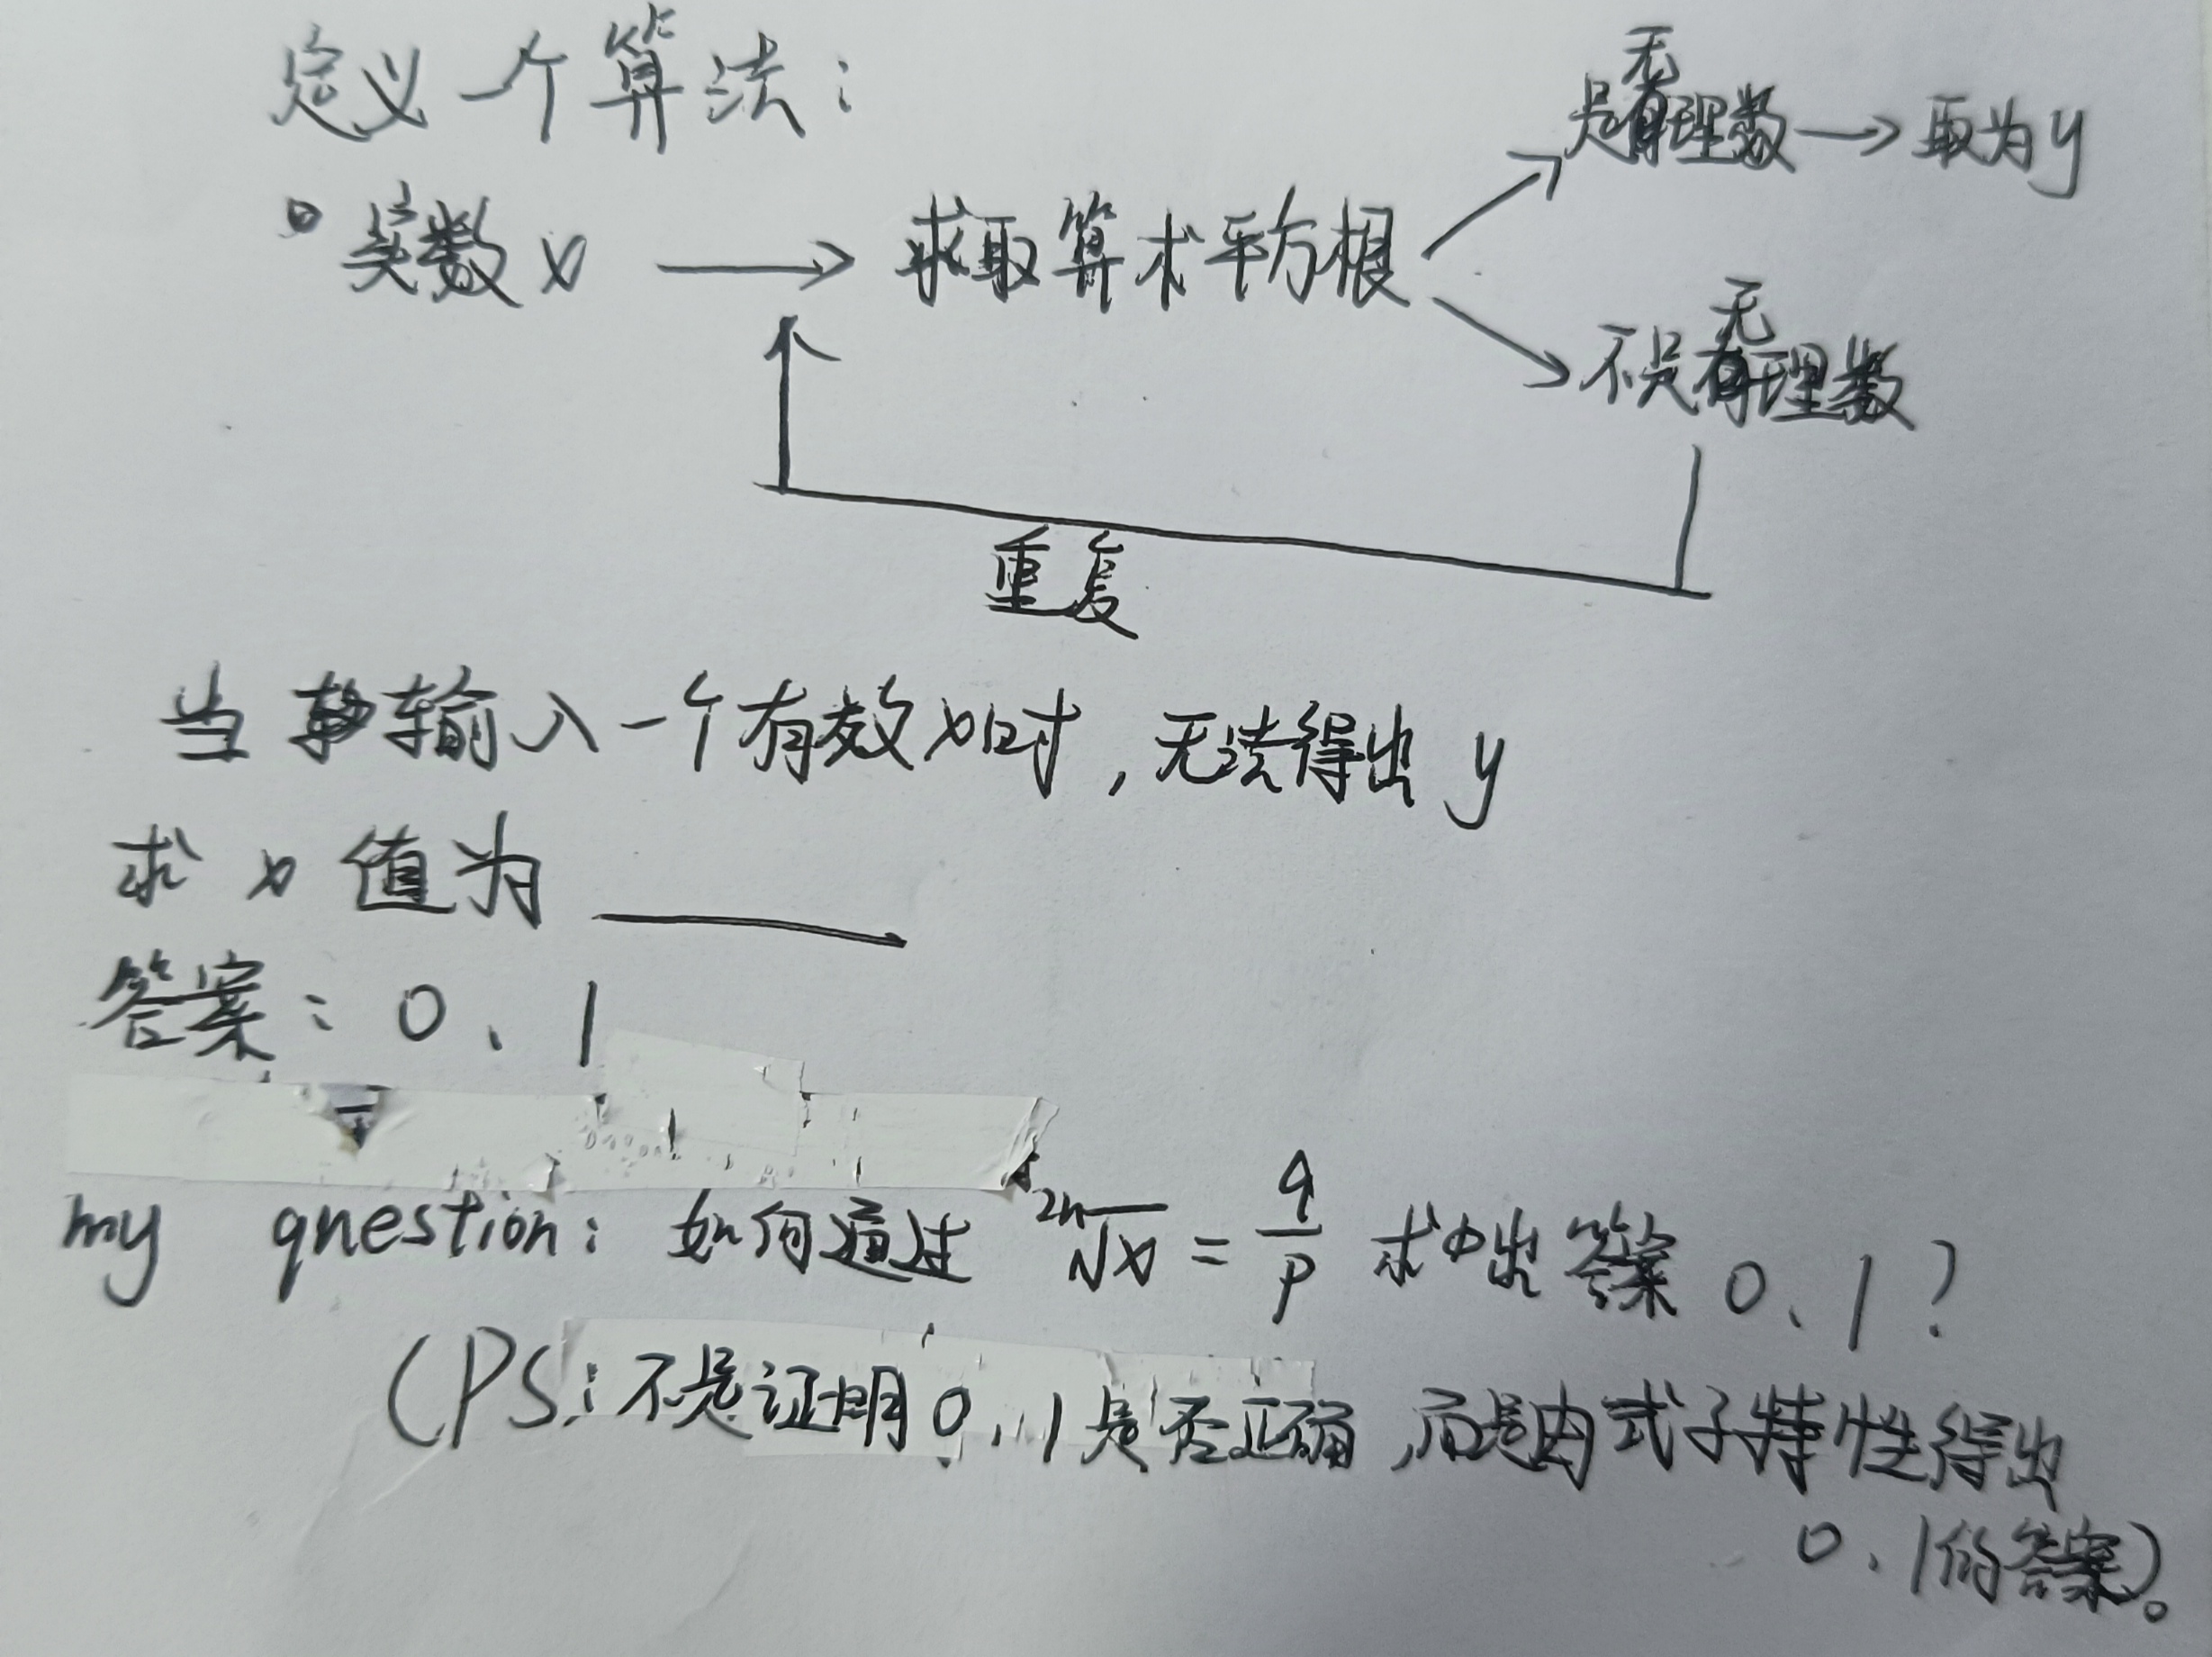 定义一个算法：
是无理数 → 取为y
实数x → 求取算术平方根
不是无理数
重复
当输入一个有效x时，无法得出y
求x值为
答案：0、1
my question：如何通过 ²ⁿ√x = q/p 求出答案 0、1？
（PS：不是证明0、1是否正确，而是由式子特性得出
0、1的答案）。